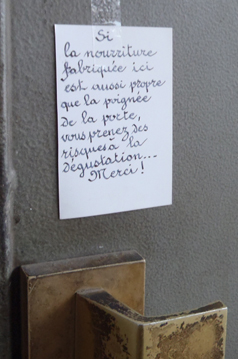 Si
la nourriture
fabriquée ici
est aussi propre
que la poignée
de la porte,
vous prenez des
risques à la
dégustation...
Merci !